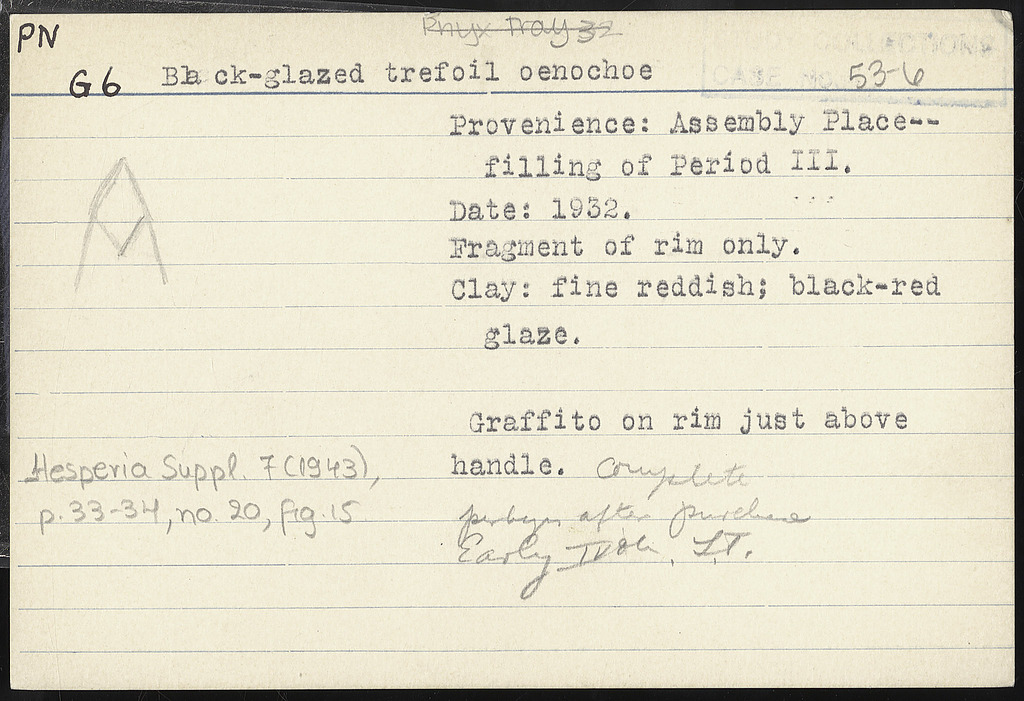 PN
Pnyx Tray 32
STUDY COLLECTIONS
CASE NO. 53-6
G6 Black-glazed trefoil oenochoe
Provenience: Assembly Place--
filling of Period III.
Date: 1932.
Fragment of rim only.
Clay: fine reddish; black-red
glaze.
Graffito on rim just above
handle. Complete
perhaps after purchase
Early IV
Hesperia Suppl. 7 (1943),
p. 33-34, no. 20, fig. 15